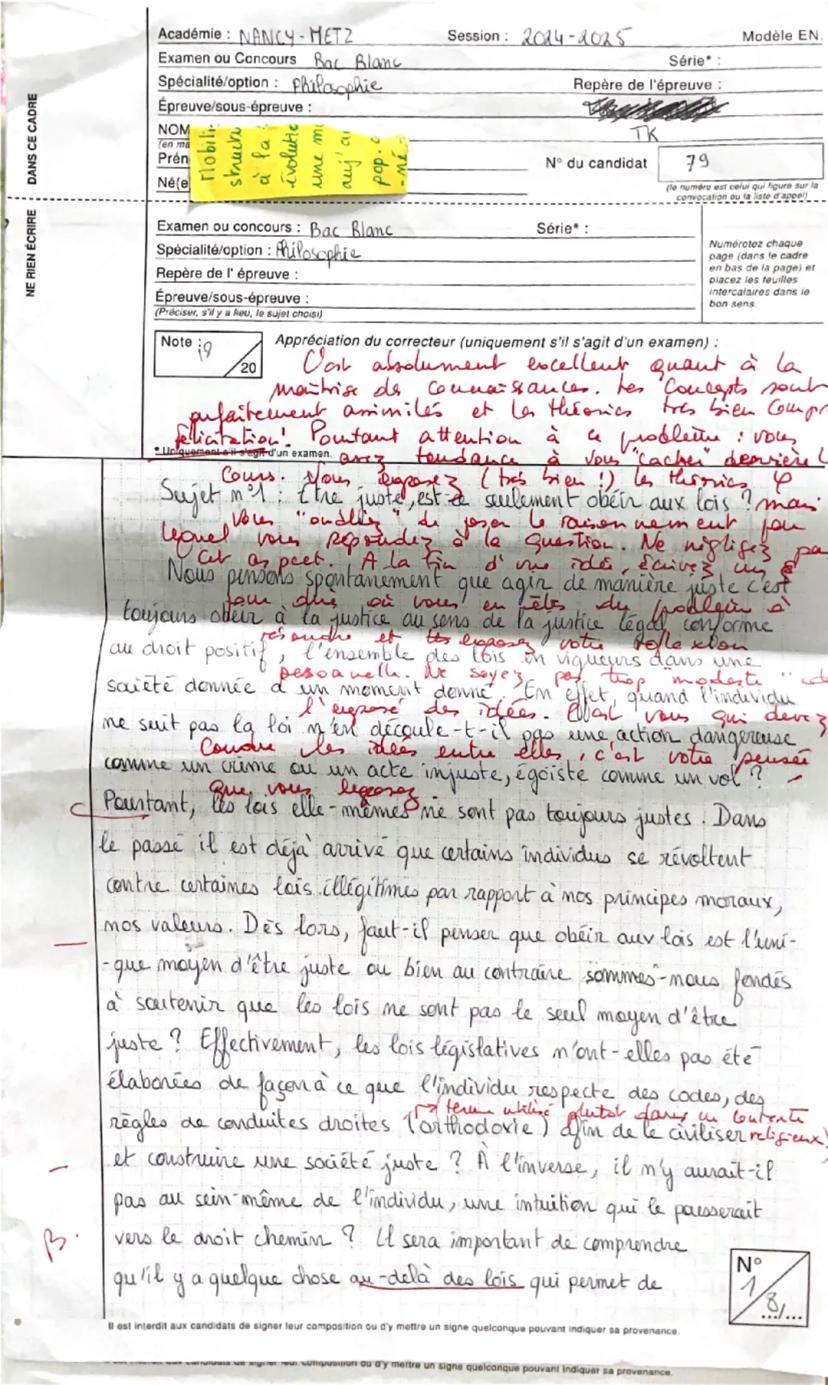 Académie : NANCY-METZ Session : 2024-2025 Modèle EN.
Examen ou Concours Bac Blanc Série* :
Spécialité/option : Philosophie Repère de l'épreuve :
Épreuve/sous-épreuve :
NOM TK
(en ma
Prén N° du candidat 79
Né(e (le numéro est celui qui figure sur la
convocation ou la liste d'appel)
Mobili
structu
à la
évolutio
une m
auj'
pop.
DANS CE CADRE
NE RIEN ÉCRIRE
Examen ou concours : Bac Blanc Série* :
Spécialité/option : Philosophie
Repère de l' épreuve :
Épreuve/sous-épreuve :
(Préciser, s'il y a lieu, le sujet choisi)
Numérotez chaque
page (dans le cadre
en bas de la page) et
placez les feuilles
intercalaires dans le
bon sens.
Note : 19 / 20
Appréciation du correcteur (uniquement s'il s'agit d'un examen) :
C'est absolument excellent quant à la
maîtrise de connaissances. Les concepts sont
parfaitement assimilés et les théories très bien compr
félicitation! Pourtant attention à ce problème : vous
* Uniquement s'il s'agit d'un examen.
avez tendance à vous "cacher" derrière l
cours. Vous exposez (très bien !) les théories φ
Sujet n°1 : Être juste, est-ce seulement obéir aux lois ?
mais
vous "oubliez" de poser le raisonnement par
lequel vous répondez à la question. Ne négligez pa
cet aspect. A la fin d'une idée, écrivez un
Nous pensons spontanément que agir de manière juste c'est
pour dire où vous en êtes du problème à
toujours obéir à la justice au sens de la justice légal conforme
résoudre et exposez votre réflexion
au droit positif, l'ensemble des lois en vigueurs dans une
personnelle. Ne soyez pas trop "modeste"
société donnée à un moment donné. En effet, quand l'individu
l'exposé des idées. C'est vous qui devez
ne suit pas la loi n'en découle-t-il pas une action dangereuse
coudre les idées entre elles, c'est votre pensée
comme un crime ou un acte injuste, égoïste comme un vol ?
que vous exposez.
Pourtant, les lois elle-mêmes ne sont pas toujours justes. Dans
le passé il est déjà arrivé que certains individus se révoltent
contre certaines lois illégitimes par rapport à nos principes moraux,
nos valeurs. Dès lors, faut-il penser que obéir aux lois est l'uni-
-que moyen d'être juste ou bien au contraire sommes-nous fondés
à soutenir que les lois ne sont pas le seul moyen d'être
juste ? Effectivement, les lois législatives n'ont-elles pas été
élaborées de façon à ce que l'individu respecte des codes, des
terme utilisé plutôt dans un contexte
règles de conduites droites (orthodoxie) afin de le civiliser
religieux)
et construire une société juste ? À l'inverse, il n'y aurait-il
pas au sein-même de l'individu, une intuition qui le pousserait
vers le droit chemin ? Il sera important de comprendre
B.
qu'il y a quelque chose au-delà des lois qui permet de
N°
1/8
.../...
Il est interdit aux candidats de signer leur composition ou d'y mettre un signe quelconque pouvant indiquer sa provenance.
composition ou d'y mettre un signe quelconque pouvant indiquer sa provenance.